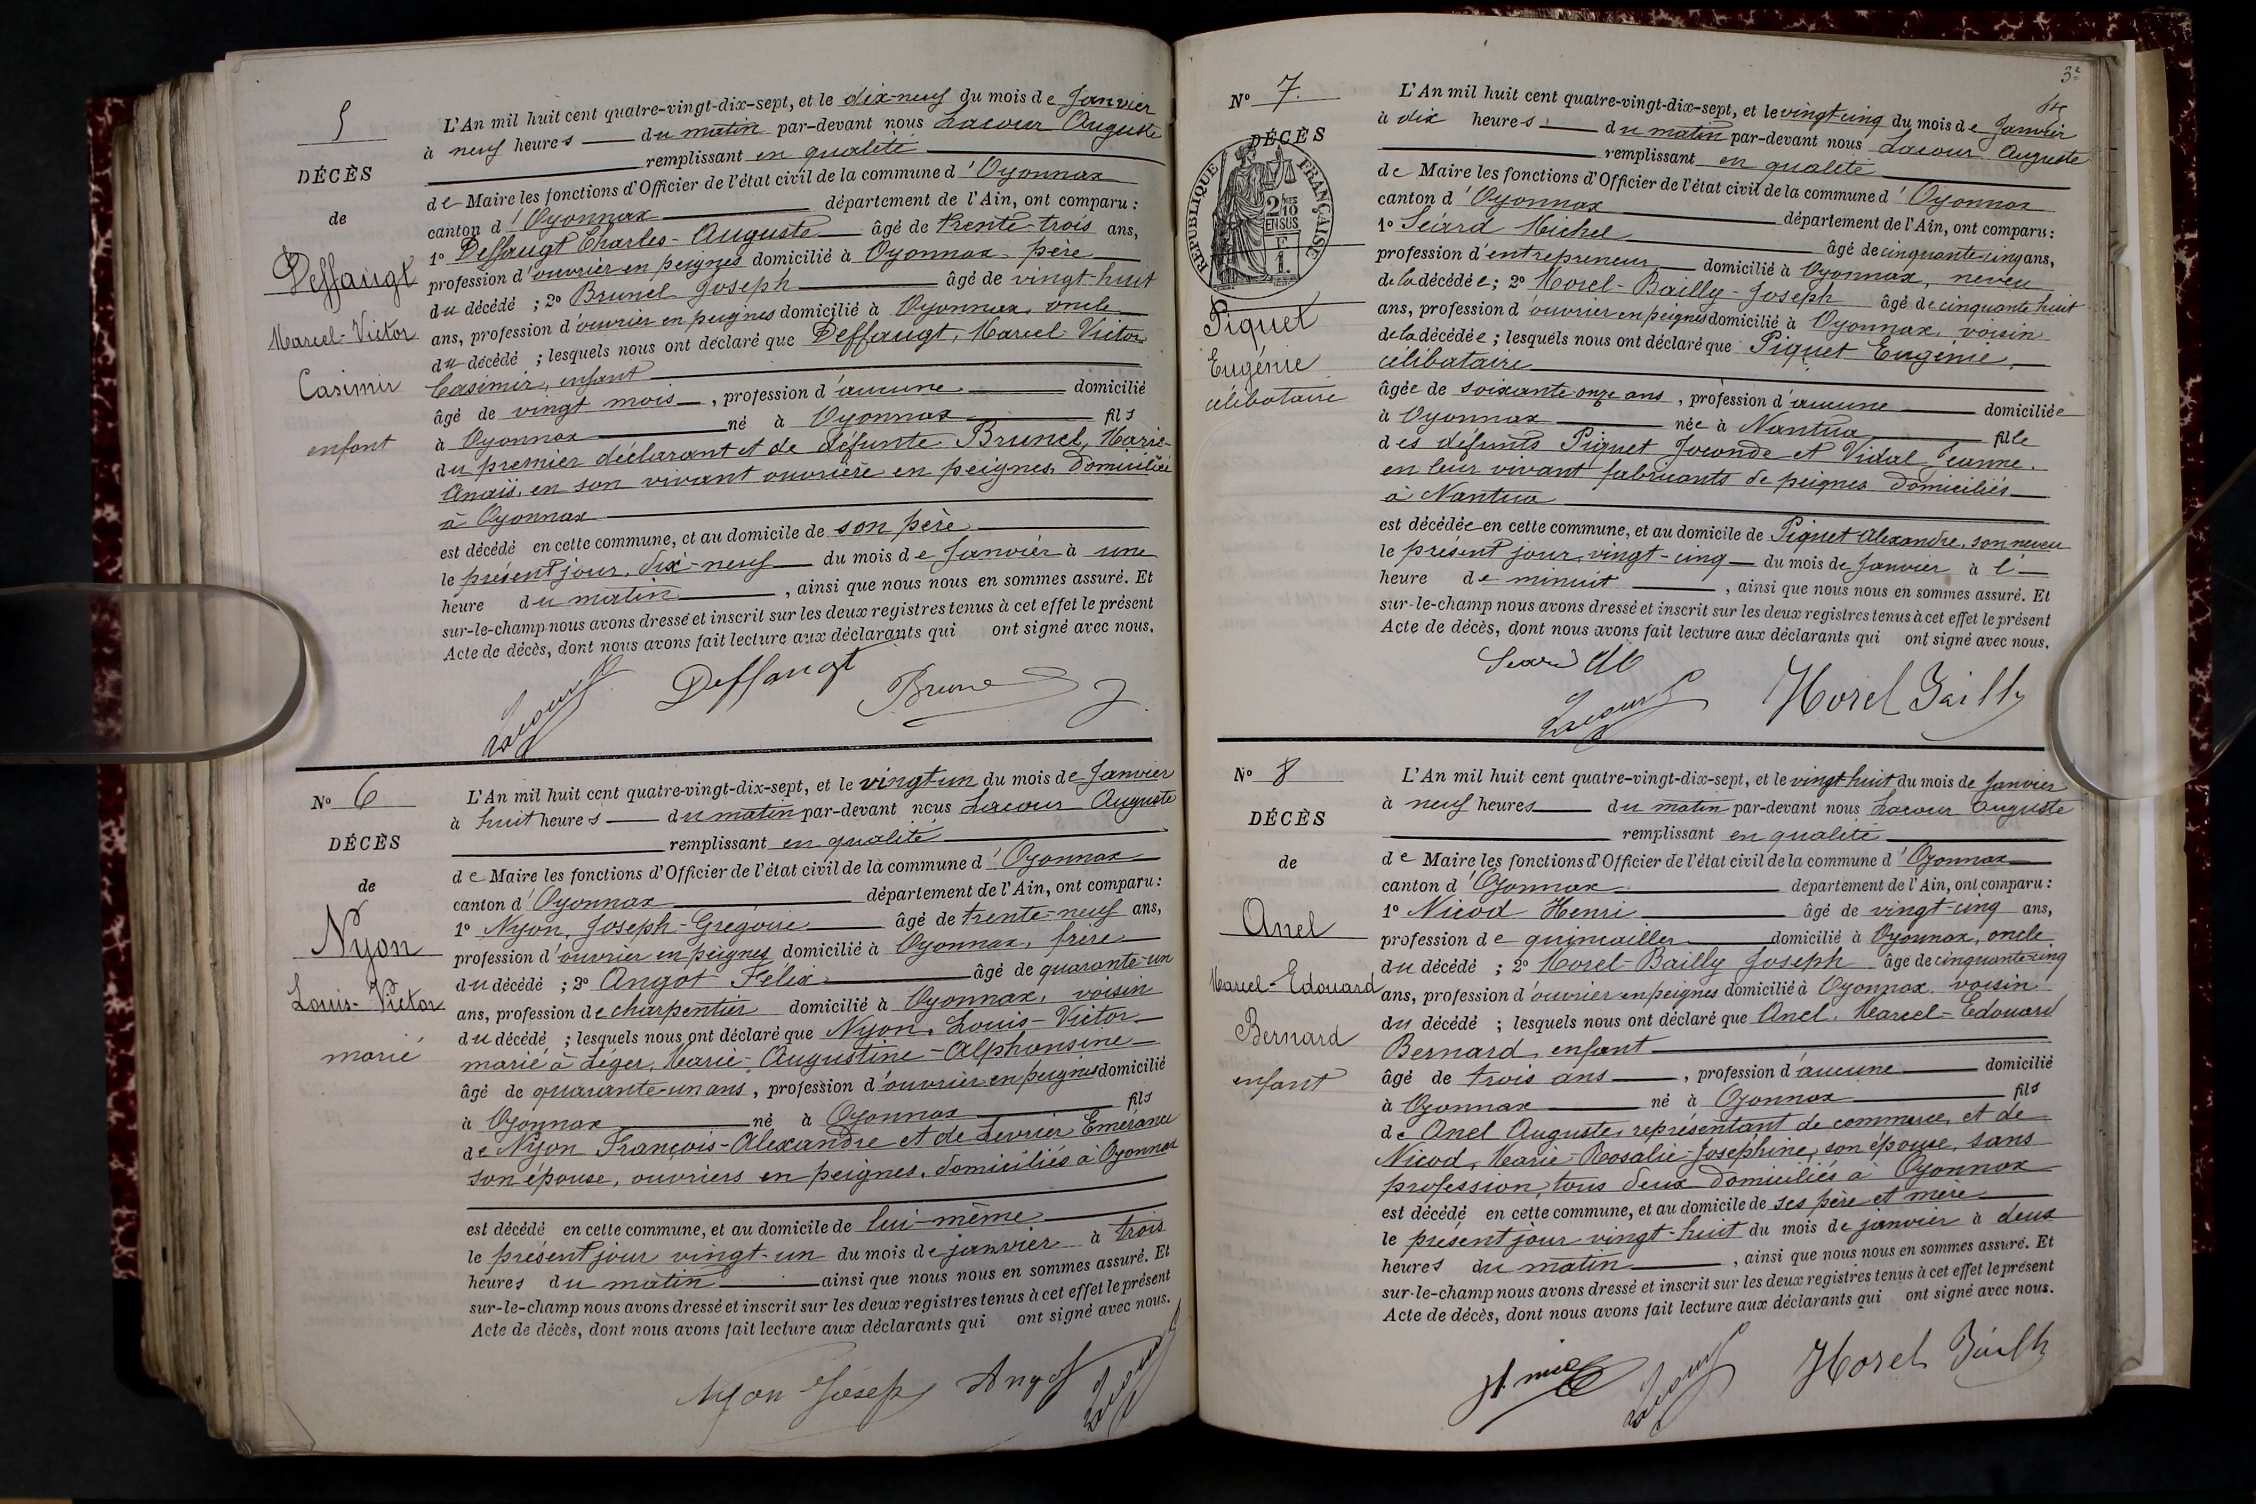 5
DÉCÈS
de
Deffaugt
Marcel-Victor
Casimir
enfant
L'An mil huit cent quatre-vingt-dix-sept, et le dix-neuf du mois de Janvier
à neuf heures du matin par-devant nous Lacour Auguste
remplissant en qualité
de Maire les fonctions d'Officier de l'état civil de la commune d'Oyonnax
canton d'Oyonnax département de l'Ain, ont comparu :
1º Deffaugt Charles-Auguste âgé de trente-trois ans,
profession d'ouvrier en peignes domicilié à Oyonnax, père
du décédé ; 2º Brunel Joseph âgé de vingt-huit
ans, profession d'ouvrier en peignes domicilié à Oyonnax, oncle
du décédé ; lesquels nous ont déclaré que Deffaugt, Marcel-Victor
Casimir, enfant
âgé de vingt mois, profession d'aucune domicilié
à Oyonnax né à Oyonnax fils
du premier déclarant et de défunte Brunel, Marie-
Anaïs, en son vivant ouvrière en peignes, domiciliée
à Oyonnax
est décédé en cette commune, et au domicile de son père
le présent jour, dix-neuf du mois de Janvier à une
heure du matin, ainsi que nous nous en sommes assuré. Et
sur-le-champ nous avons dressé et inscrit sur les deux registres tenus à cet effet le présent
Acte de décès, dont nous avons fait lecture aux déclarants qui ont signé avec nous.
Lacour Deffaugt Brunel
Nº 6
DÉCÈS
de
Nyon
Louis-Victor
marié
L'An mil huit cent quatre-vingt-dix-sept, et le vingt-un du mois de Janvier
à huit heures du matin par-devant nous Lacour Auguste
remplissant en qualité
de Maire les fonctions d'Officier de l'état civil de la commune d'Oyonnax
canton d'Oyonnax département de l'Ain, ont comparu :
1º Nyon, Joseph-Grégoire âgé de trente-neuf ans,
profession d'ouvrier en peignes domicilié à Oyonnax, frère
du décédé ; 2º Angot Félix âgé de quarante-un
ans, profession de charpentier domicilié à Oyonnax, voisin
du décédé ; lesquels nous ont déclaré que Nyon, Louis-Victor
marié à Léger, Marie-Augustine-Alphonsine
âgé de quarante-un ans, profession d'ouvrier en peignes domicilié
à Oyonnax né à Oyonnax fils
de Nyon François-Alexandre et de Levrier Emérance
son épouse, ouvriers en peignes, domiciliés à Oyonnax
est décédé en cette commune, et au domicile de lui-même
le présent jour vingt-un du mois de janvier à trois
heures du matin ainsi que nous nous en sommes assuré. Et
sur-le-champ nous avons dressé et inscrit sur les deux registres tenus à cet effet le présent
Acte de décès, dont nous avons fait lecture aux déclarants qui ont signé avec nous.
Nyon Joseph Angot Lacour
3
Nº 7.
DÉCÈS
RÉPUBLIQUE FRANÇAISE
2/10 EN SUS
F 1.
Piquet
Eugénie
célibataire
L'An mil huit cent quatre-vingt-dix-sept, et le vingt-cinq du mois de Janvier
à dix heures du matin par-devant nous Lacour Auguste
remplissant en qualité
de Maire les fonctions d'Officier de l'état civil de la commune d'Oyonnax
canton d'Oyonnax département de l'Ain, ont comparu :
1º Séard Michel âgé de cinquante-cinq ans,
profession d'entrepreneur domicilié à Oyonnax, neveu
de la décédée ; 2º Morel-Bailly-Joseph âgé de cinquante huit
ans, profession d'ouvrier en peignes domicilié à Oyonnax, voisin
de la décédée ; lesquels nous ont déclaré que Piquet Eugénie,
célibataire
âgée de soixante-onze ans, profession d'aucune domiciliée
à Oyonnax née à Nantua fille
des défunts Piquet Joconde et Vidal Jeanne,
en leur vivant fabricants de peignes domiciliés
à Nantua
est décédée en cette commune, et au domicile de Piquet Alexandre, son neveu
le présent jour, vingt-cinq du mois de Janvier à l'
heure de minuit, ainsi que nous nous en sommes assuré. Et
sur-le-champ nous avons dressé et inscrit sur les deux registres tenus à cet effet le présent
Acte de décès, dont nous avons fait lecture aux déclarants qui ont signé avec nous.
Seard
Lacour Morel Bailly
Nº 8
DÉCÈS
de
Anel
Marcel-Edouard
Bernard
enfant
L'An mil huit cent quatre-vingt-dix-sept, et le vingt huit du mois de Janvier
à neuf heures du matin par-devant nous Lacour Auguste
remplissant en qualité
de Maire les fonctions d'Officier de l'état civil de la commune d'Oyonnax
canton d'Oyonnax département de l'Ain, ont comparu :
1º Nicod Henri âgé de vingt-cinq ans,
profession de quincailler domicilié à Oyonnax, oncle
du décédé ; 2º Morel-Bailly Joseph âgé de cinquante-cinq
ans, profession d'ouvrier en peignes domicilié à Oyonnax voisin
du décédé ; lesquels nous ont déclaré que Anel, Marcel-Edouard
Bernard, enfant
âgé de trois ans, profession d'aucune domicilié
à Oyonnax né à Oyonnax fils
de Anel Auguste, représentant de commerce, et de
Nicod, Marie-Rosalie-Joséphine, son épouse, sans
profession, tous deux domiciliés à Oyonnax
est décédé en cette commune, et au domicile de ses père et mère
le présent jour vingt-huit du mois de janvier à deux
heures du matin, ainsi que nous nous en sommes assuré. Et
sur-le-champ nous avons dressé et inscrit sur les deux registres tenus à cet effet le présent
Acte de décès, dont nous avons fait lecture aux déclarants qui ont signé avec nous.
Lacour Morel Bailly